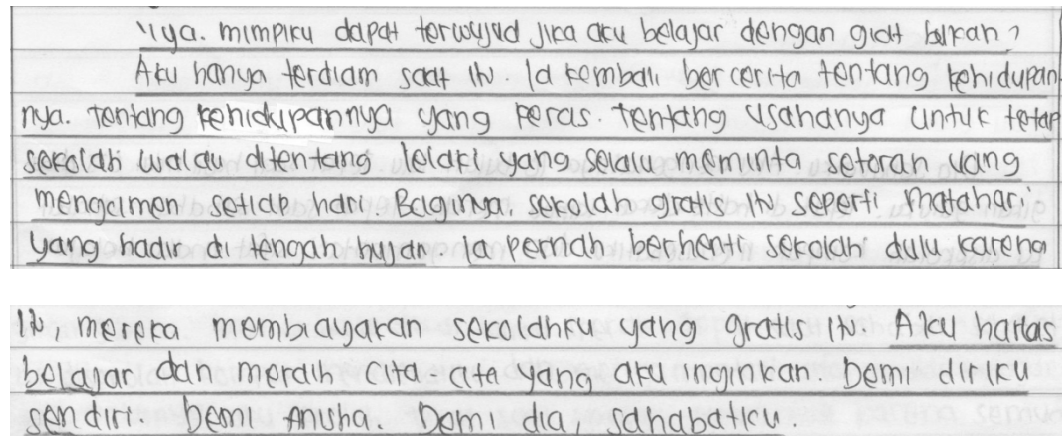 "Iya. mimpiku dapat terwujud jika aku belajar dengan giat bukan?
Aku hanya terdiam saat itu. Ia kembali bercerita tentang kehidupan
nya. Tentang kehidupannya yang keras. Tentang usahanya untuk tetap
sekolah walau ditentang lelaki yang selalu meminta setoran uang
mengamen setiap hari. Baginya, sekolah gratis itu seperti matahari
yang hadir di tengah hujan. ia pernah berhenti sekolah dulu karena
itu, mereka membiayakan sekolahku yang gratis ini. Aku harus
belajar dan meraih cita-cita yang aku inginkan. Demi diriku
sendiri. Demi Amuna. Demi dia, sahabatku.